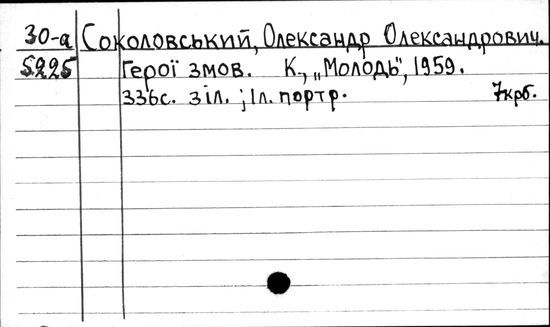 30-а Соколовський, Олександр Олександрович.
5225 Герої змов. К., „Молодь", 1959.
336с. з іл. ; 1л. портр. 7крб.